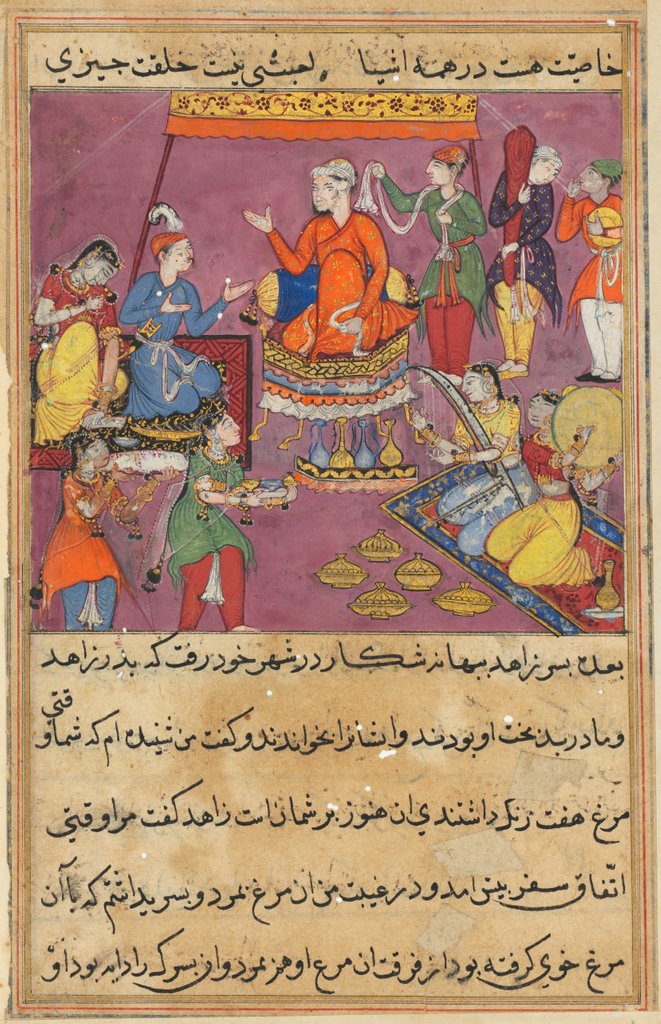 خاصیّت هست در همه اشیا لعبثی نیست خلقت چیزی
بعده پسر زاهد ببهانه شکار در شهر خود رفت که پدر زاهد
و مادر بدبخت او بودند و ایشانرا بخواندند و گفت من شنیده ام که شما وقتی
مرغ هفت رنگ داشتندی ان هنوز بر شمان است زاهد گفت مرا وقتی
اتّفاق سفر پیش امد و در غیبت من ان مرغ بمرد و پسری داشتم که با آن
مرغ خوی کرفته بود از فرقت ان مرغ او هم بمرد و ان پسرک را دایه بود او